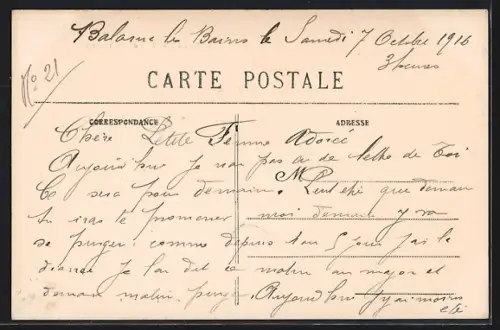 Balaruc les Bains le Samedi 7 Octobre 1916
3 heures
No 21
CARTE POSTALE
CORRESPONDANCE
ADRESSE
Chère Petite Femme Adorée
Aujourd'hui Je nai pas eu de lettre de Toi
Ce sera pour demain. Peut etre que demain
tu iras te promener moi demain y va
se purger comme depuis 4 ou 5 jours j'ai la
diarée Je l'ai dit ce matin au major et
demain matin purge. Aujourd'hui j'y ai moins
été